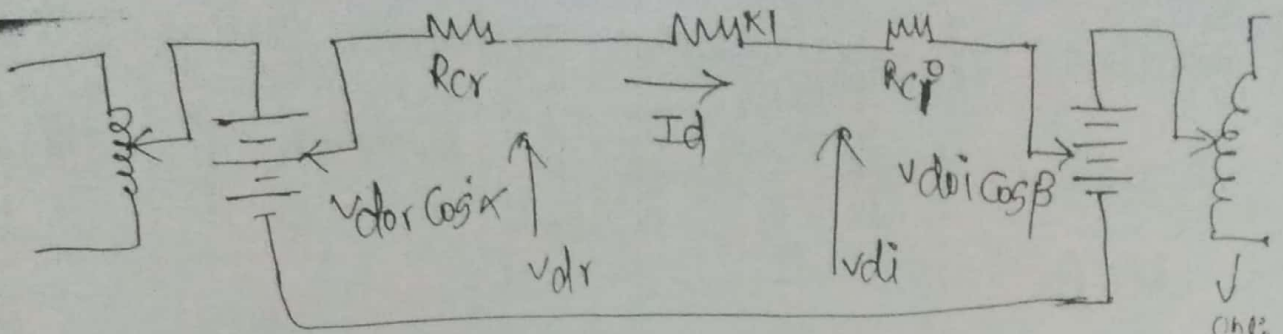 Rcr
Rl
Rci
Id
Vdor Cosα
Vdoi Cosβ
Vdr
Vdi